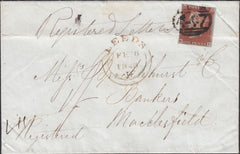 Registered Letter
LEEDS
FE 8
Messrs Brocklehurst & Co
Bankers
Macclesfield
Registered